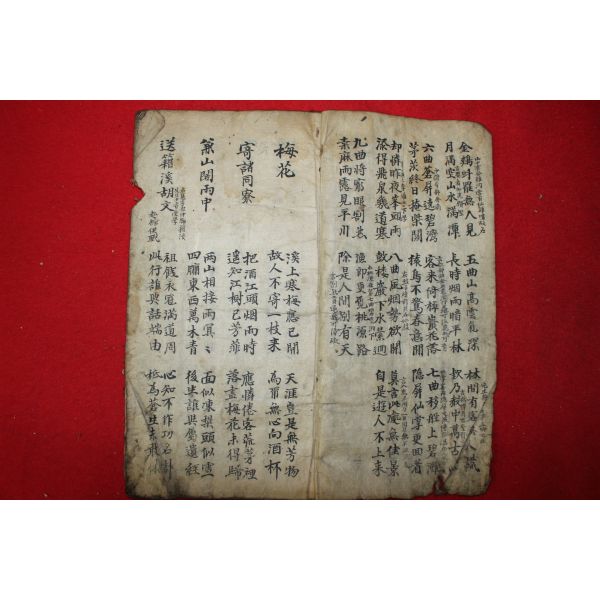 金鷄叫罷無人見 五曲山高雲氣深 林間有客無人識
月滿空山水滿潭 長時烟雨暗平林 欸乃聲中萬古心
六曲蒼屛遶碧灣 客來倚棹巖花落 七曲移船上碧灘
茅茨終日掩柴關 猿鳥不驚春意閒 隱屛仙掌更回看
却憐昨夜峯頭雨 八曲風烟勢欲開 莫言此處無佳景
添得飛泉幾道寒 鼓樓巖下水縈洄 自是遊人不上來
九曲將窮眼豁然 漁郎更覓桃源路
桑麻雨露見平川 除是人間別有天
梅花
溪上寒梅應已開 天涯豈是無芳物
故人不寄一枝來 爲罪無心向酒杯
寄諸同寮
把酒江頭烟雨時 應憐倦客荒茅裡
遙知江樹已芳菲 落盡梅花未得歸
篁山關雨中
兩山相接雨冥冥 面似凍梨頭似雪
四牖東西萬木青 後生誰與屬遺經
送籍溪胡丈
祖餞衣冠滿道周 心知不作功名計
此行誰與話端由 秪爲蒼生未敢休